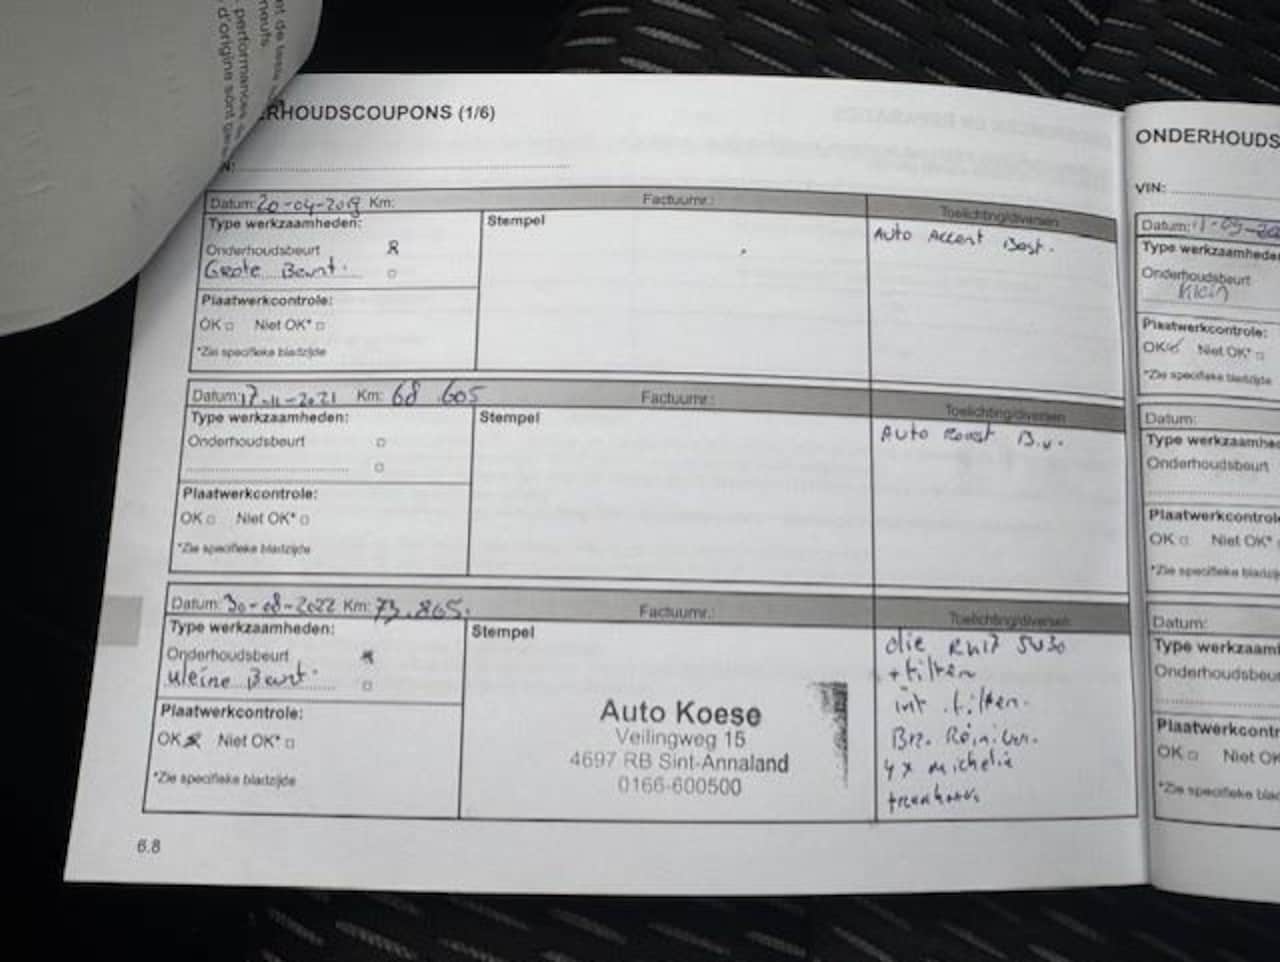 et de
performances
d'origine sont
RHOUDSCOUPONS (1/6)
N:
Datum: 20-04-2019 Km: Factuurnr.: Toelichting/diversen
Type werkzaamheden:
Stempel
Auto Accent Best.
Onderhoudsbeurt
Grote Beurt.
Plaatwerkcontrole:
OK Niet OK*
*Zie specifieke bladzijde
Datum: 17-11-2021 Km: 68.605 Factuurnr.: Toelichting/diversen
Type werkzaamheden:
Stempel
Auto B.v.
Onderhoudsbeurt
Plaatwerkcontrole:
OK Niet OK*
*Zie specifieke bladzijde
Datum: 30-08-2022 Km: 73.865. Factuurnr.: Toelichting/diversen
Type werkzaamheden:
Stempel
Onderhoudsbeurt
kleine Beurt.
Plaatwerkcontrole:
OK Niet OK*
*Zie specifieke bladzijde
Auto Koese
Veilingweg 15
4697 RB Sint-Annaland
0166-600500
olie 5W30
+ filter
int. filter.
4x michelin
6.8
ONDERHOUDS
VIN:
Datum: 11-09-20
Type werkzaamheden
Onderhoudsbeurt
Klein
Plaatwerkcontrole:
OK Niet OK*
*Zie specifieke bladzijde
Datum:
Type werkzaamhe
Onderhoudsbeurt
Plaatwerkcontrol
OK Niet OK*
*Zie specifieke bladzi
Datum:
Type werkzaam
Onderhoudsbeu
Plaatwerkcontr
OK Niet OK
*Zie specifieke blad